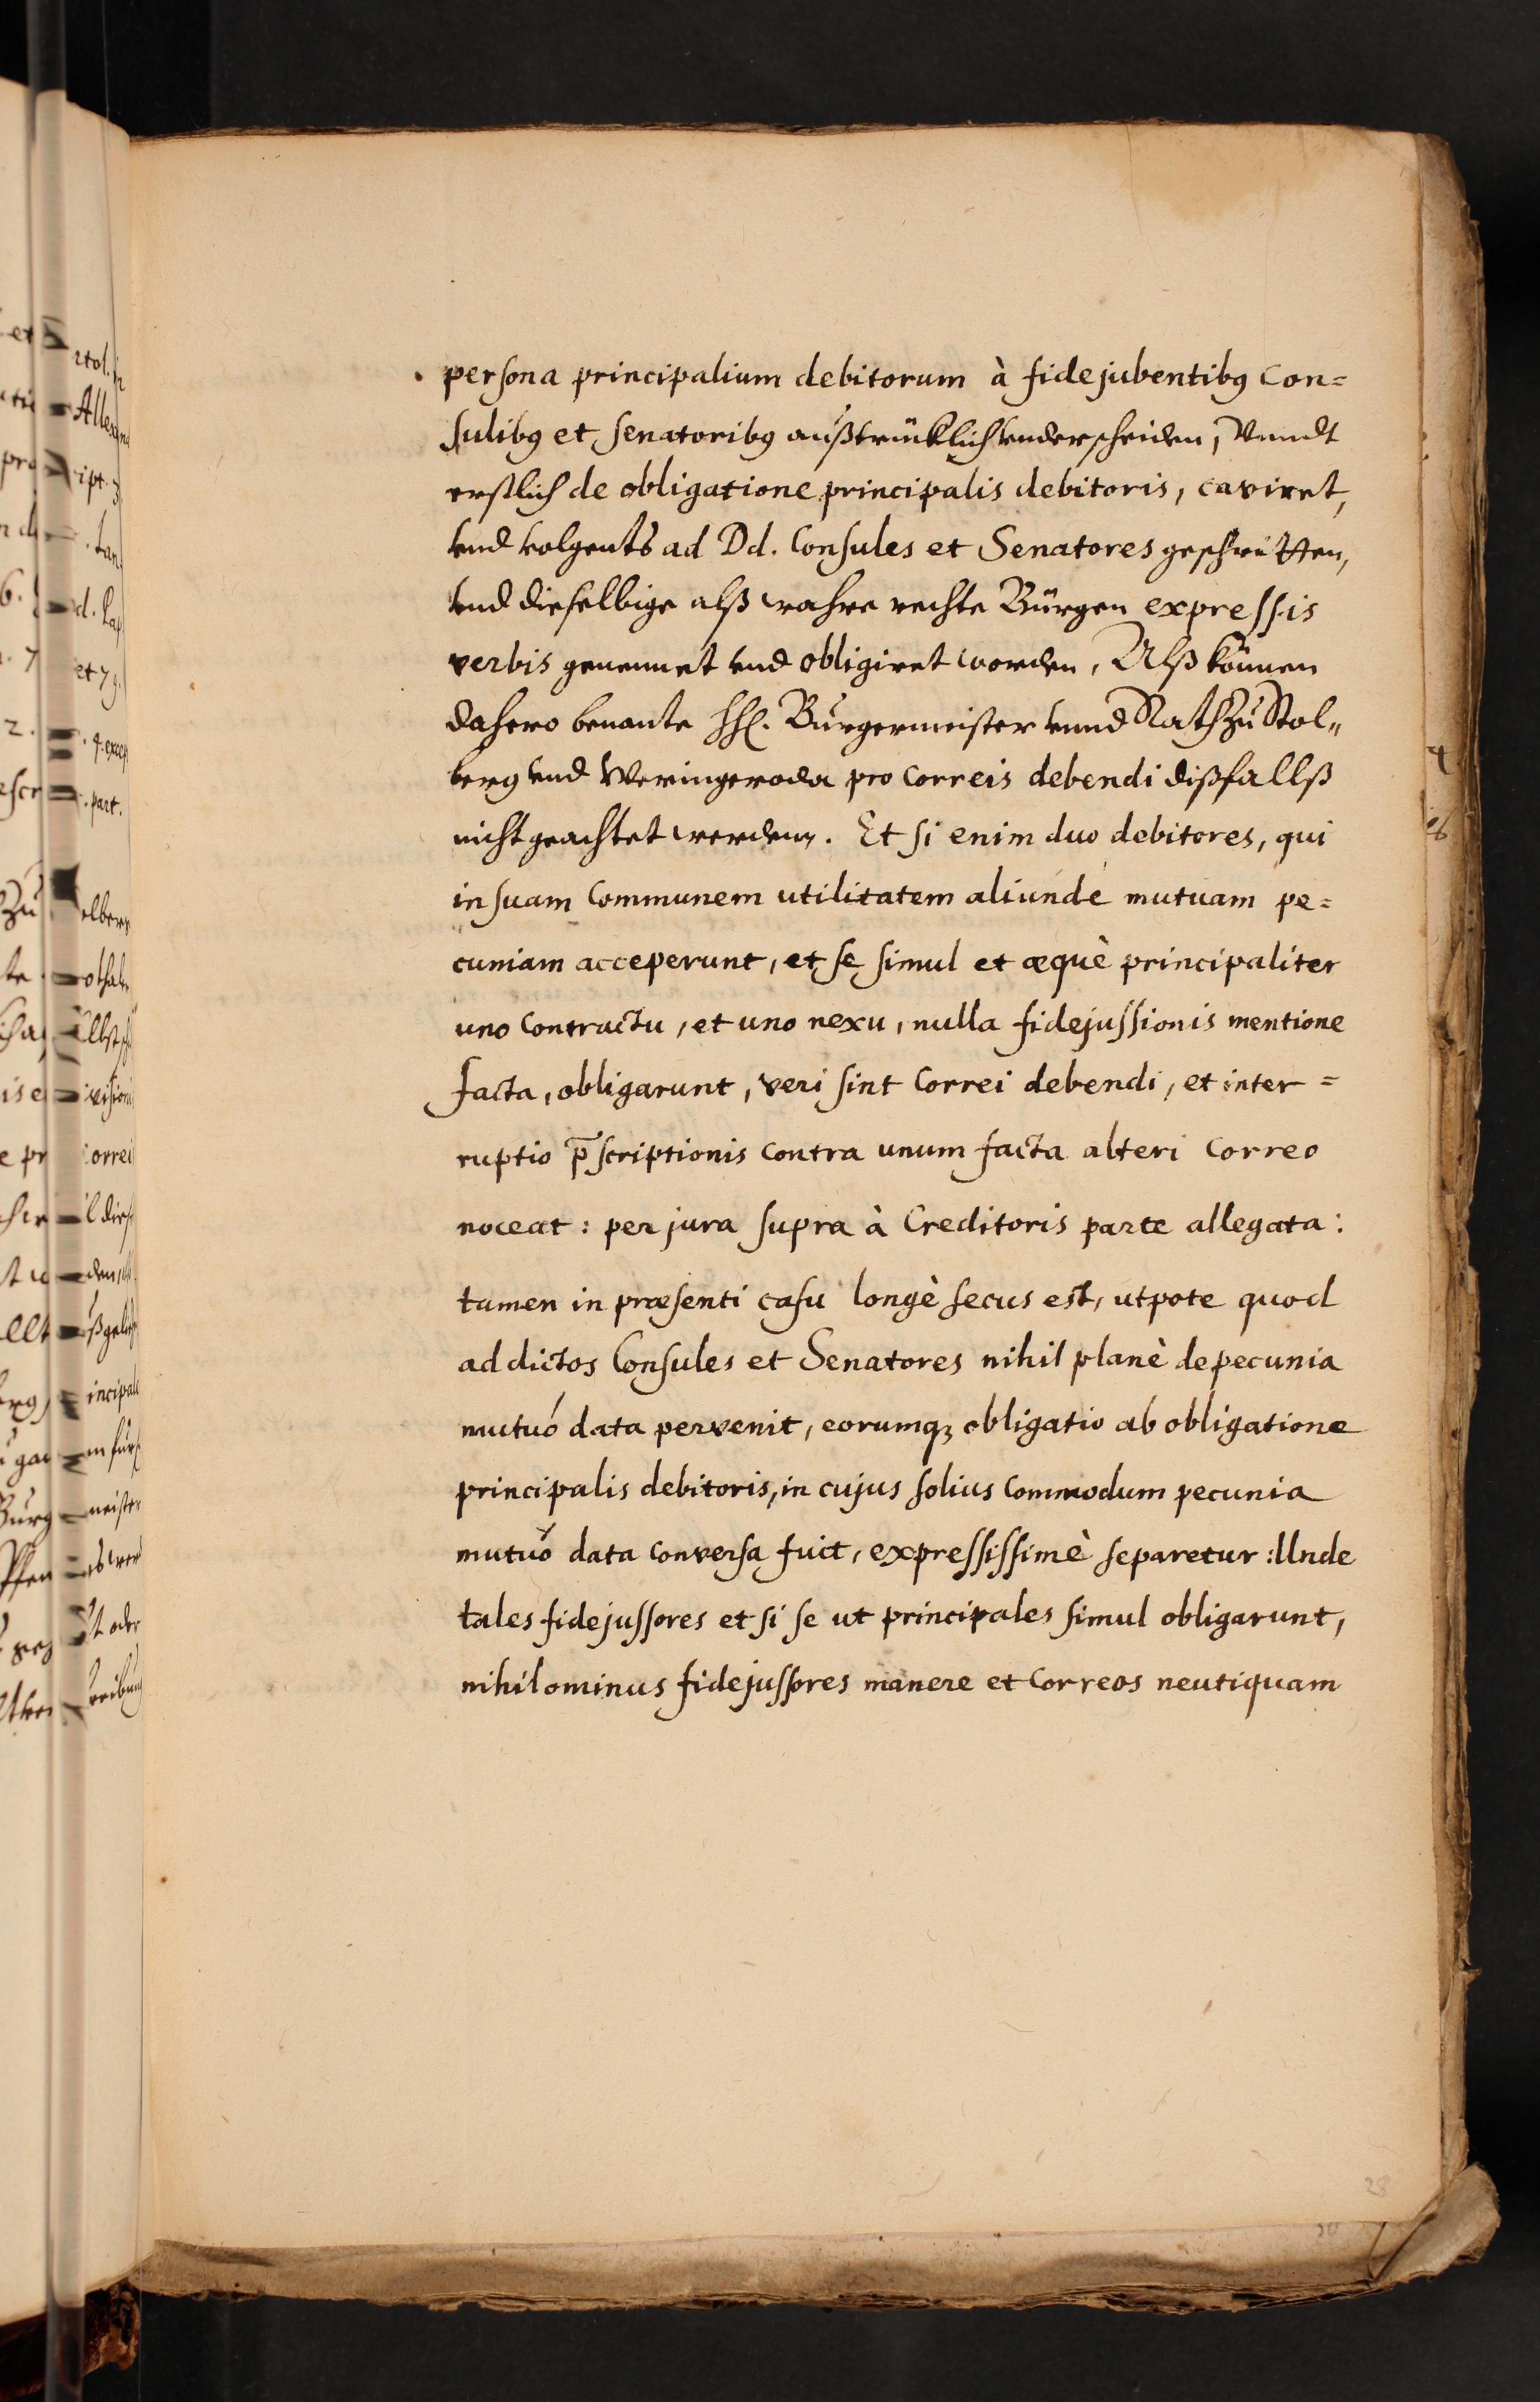 persona principalium debitorum à fidejubentibꝰ Con=
sulibꝰ et senatoribꝰ außtrücklich vnderscheiden, Vnndt
erstlich de obligatione principalis debitoris, caviret,
vnd volgents ad Dd. Consules et Senatores geschritten,
vnd dieselbige alß wahre rechte Bürgen expressis
verbis genennet vnd obligiret worden, Alß können
dahero benante HH. Burgermeister vnnd Rath Zu Stol„
berg vnd Weringeroda pro Correis debendi dißfallß
nicht geachtet werden. Et si enim duo debitores, qui
in suam Communem utilitatem aliunde mutuam pe=
cuniam acceperunt, et se simul et æquè principaliter
uno Contractu, et uno nexu, nulla fidejussionis mentione
facta, obligarunt, veri sint Correi debendi, et inter=
ruptio p̄scriptionis Contra unum facta alteri Correo
noceat: per jura supra à Creditoris parte allegata:
tamen in præsenti casu longè secus est, utpote quod
ad dictos Consules et Senatores nihil planè de pecunia
mutuó data pervenit, eorumqꝫ obligatio ab obligatione
principalis debitoris, in cujus solius Commodum pecunia
mutuò data Conversa fuit, expressissimè separetur: Unde
tales fidejussores et si se ut principales simul obligarunt,
nihilominus fidejussores manere et Correos neutiquam
28